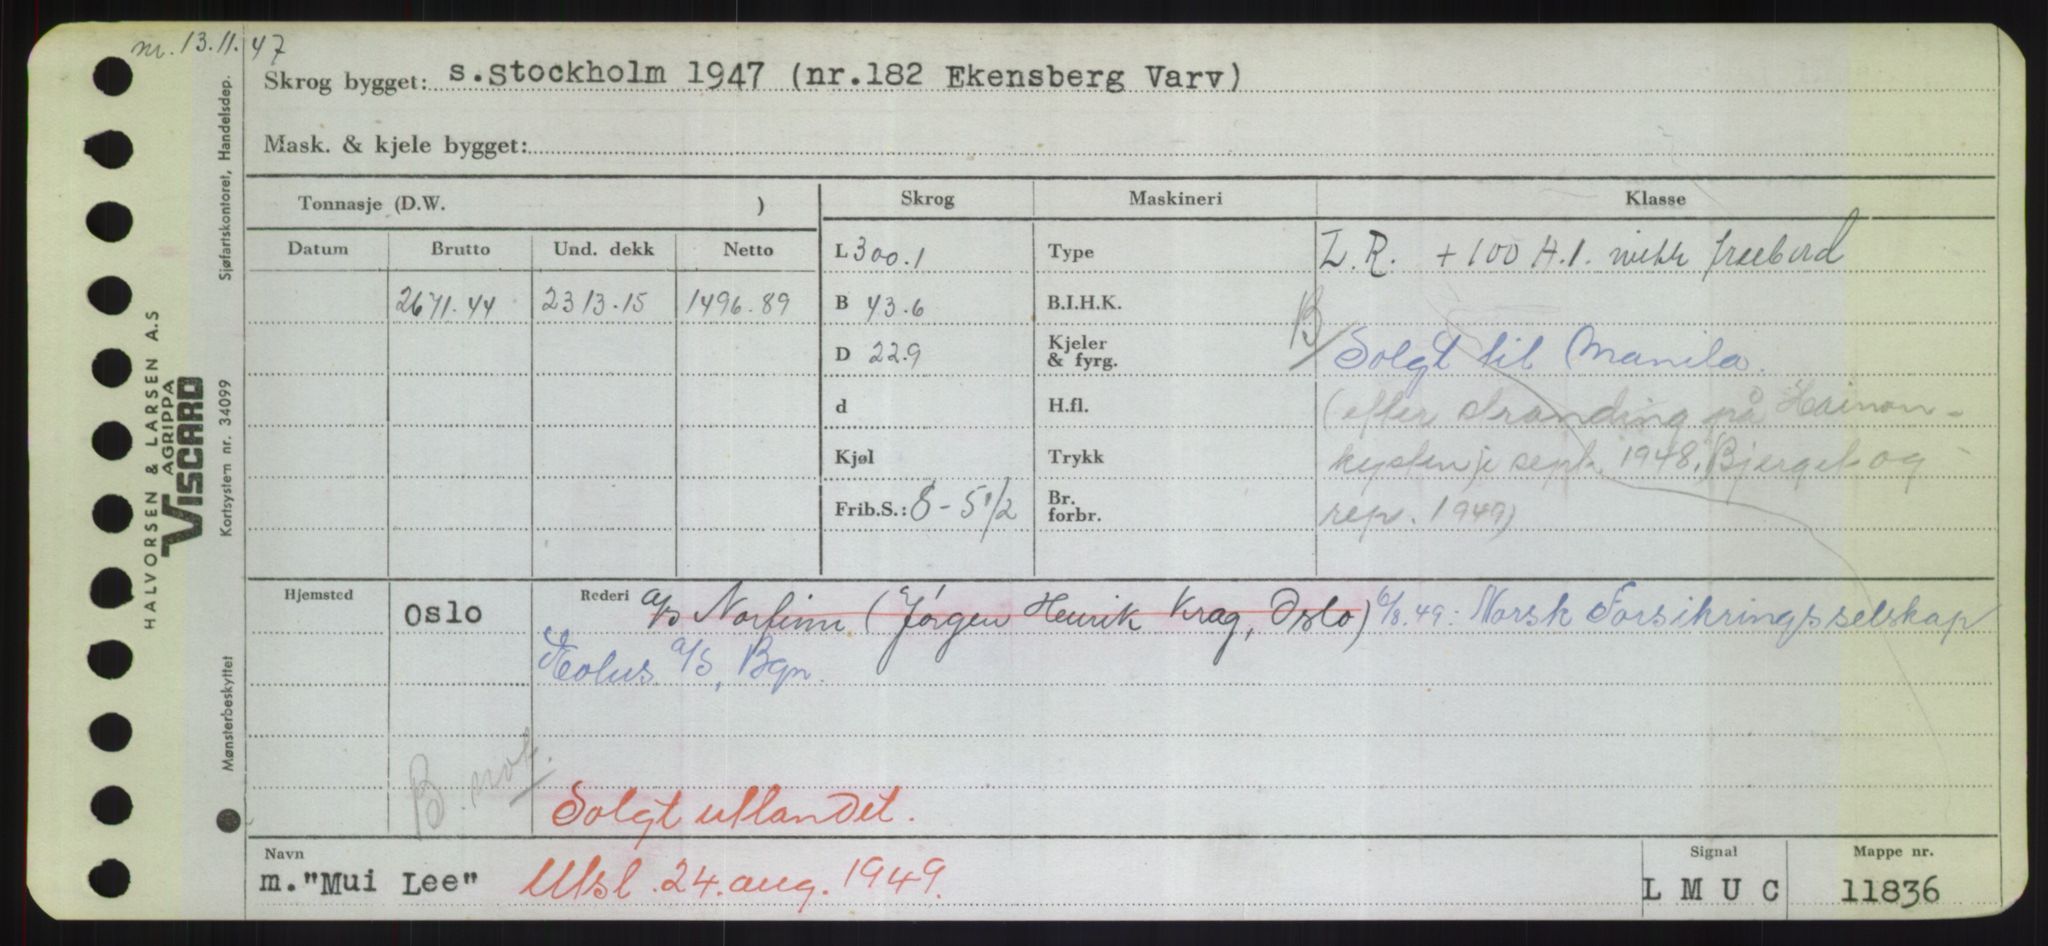 m. 13.11.47
Skrog bygget: s.Stockholm 1947 (nr.182 Ekensberg Varv)
Mask. & kjele bygget:
Tonnasje (D.W. )
Skrog
Maskineri
Klasse
Datum
Brutto
Und. dekk
Netto
2671.44
2313.15
1496.89
L 300.1
B 43.6
D 22.9
d
Kjøl
Frib.S.: 8 - 5 1/2
Type
B.I.H.K.
Kjeler
& fyrg.
H.fl.
Trykk
Br.
forbr.
L.R. + 100 A.1. with freebord
B/ Solgt til Manila.
(efter stranding på Hainan-
kysten i sept. 1948. Bjerget og
rep. 1949)
Hjemsted
Oslo
Rederi
a/s Norfinn (Jørgen Henrik Krag, Oslo) 6/8.49. Norsk Forsikringsselskap
Æolus a/s, Bgn.
B. not.
Solgt utlandet.
Navn
m."Mui Lee"
Utsl. 24. aug. 1949.
Signal
L M U C
Mappe nr.
11836
HALVORSEN & LARSEN A.S
AGRIPPA
VISCARD
Sjøfartskontoret, Handelsdep.
Kortsystem nr. 34099
Mønsterbeskyttet